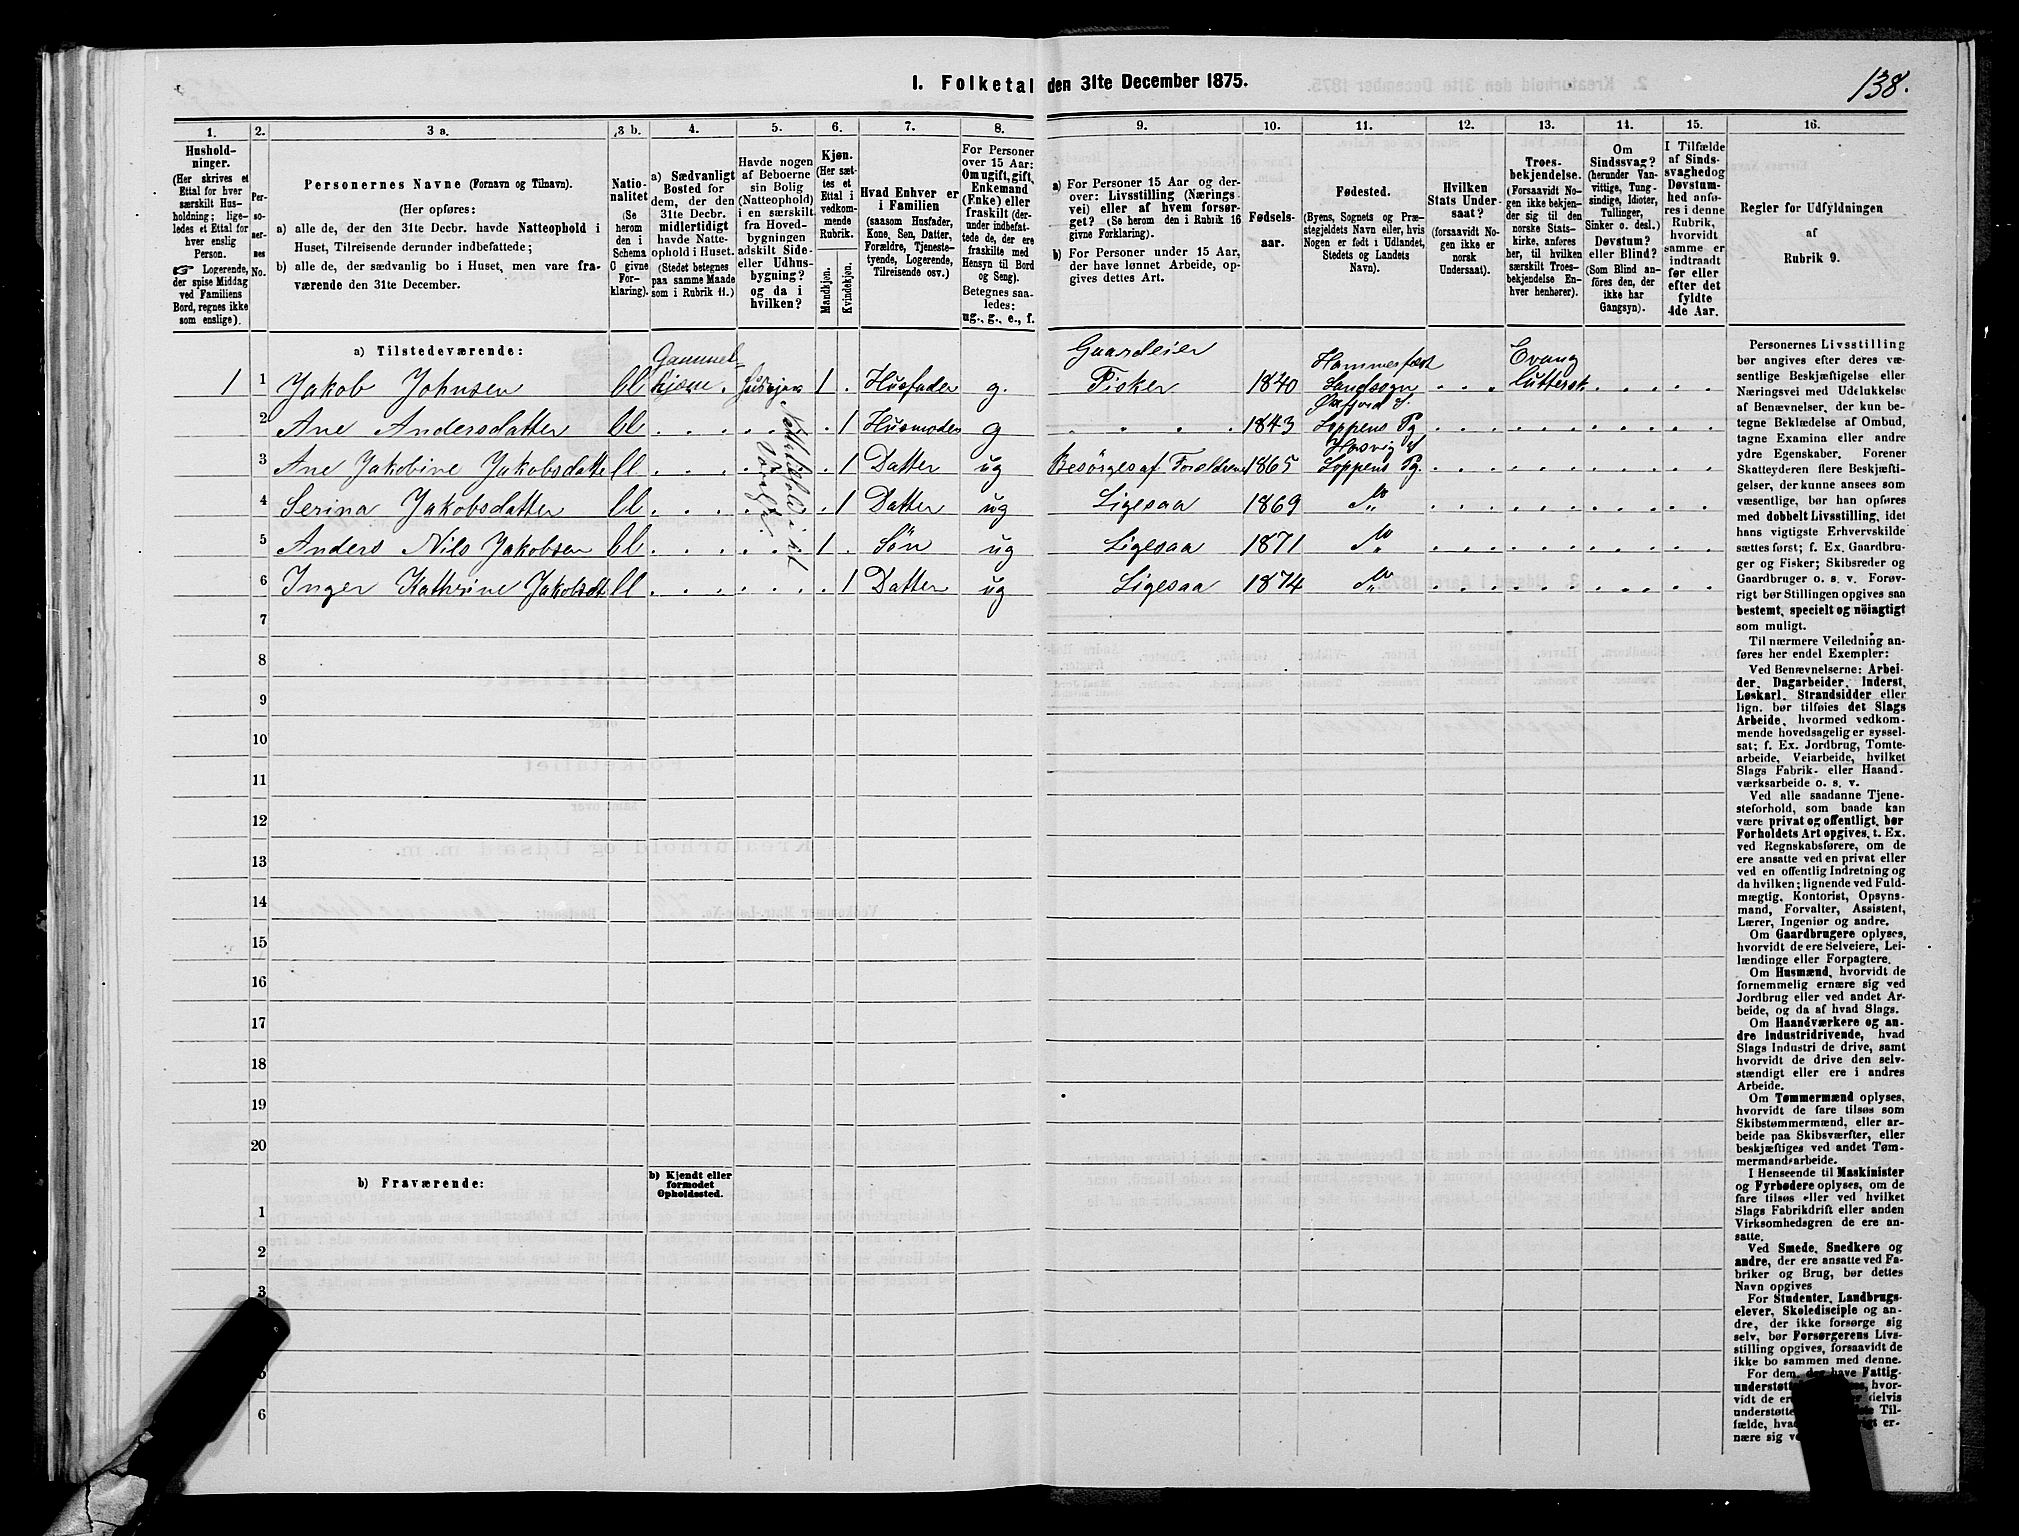 I. Folketal den 31te December 1875.
138.
1. 2. 3 a. 3 b. 4. 5. 6. 7. 8. 9. 10. 11. 12. 13. 14. 15. 16.
Hushold-
ninger.
(Her skrives et
Ettal for hver
særskilt Hus-
holdning; lige-
ledes et Ettal for
hver enslig
Person.
☞ Logerende,
der spise Middag
ved Familiens
Bord, regnes ikke
som enslige).
Per-
so-
ner-
nes
No.
Personernes Navne (Fornavn og Tilnavn).
(Her opføres:
a) alle de, der den 31te Decbr. havde Natteophold i
Huset, Tilreisende derunder indbefattede;
b) alle de, der sædvanlig bo i Huset, men vare fra-
værende den 31te December.
Natio-
nalitet
(Se
herom
den i
Schema
O givne
For-
klaring).
a) Sædvanligt
Bosted for
dem, der den
31te Decbr.
midlertidigt
havde Natte-
ophold i Huset.
(Stedet betegnes
paa samme Maade
som i Rubrik 11.)
Havde nogen
af Beboerne
sin Bolig
(Natteophold)
i en særskilt
fra Hoved-
bygningen
adskilt Side-
eller Udhus-
bygning?
og da i
hvilken?
Kjøn.
(Her sæt-
tes et
Ettal i
vedkom-
mende
Rubrik.
Mandkjøn.
Kvindekjøn.
Hvad Enhver er
i Familien
(saasom Husfader,
Kone, Søn, Datter,
Forældre, Tjeneste-
tyende, Logerende,
Tilreisende osv.)
For Personer
over 15 Aar:
Om ugift, gift,
Enkemand
(Enke) eller
fraskilt (der-
under indbefat-
tede de, der ere
fraskilte med
Hensyn til Bord
og Seng).
Betegnes saa-
ledes:
ug., g., e., f.
a) For Personer 15 Aar og der-
over: Livsstilling (Nærings-
vei) eller af hvem forsør-
get? (Se herom den i Rubrik 16
givne Forklaring).
b) For Personer under 15 Aar,
der have lønnet Arbeide, op-
gives dettes Art.
Fødsels-
aar.
Fødested.
(Byens, Sognets og Præ-
stegjeldets Navn eller, hvis
Nogen er født i Udlandet,
Stedets og Landets
Navn).
Hvilken
Stats Under-
saat?
(forsaavidt No-
gen ikke er
norsk
Undersaat).
Troes-
bekjendelse.
(Forsaavidt No-
gen ikke bekjen-
der sig til den
norske Stats-
kirke, anføres
her, til hvilken
særskilt Troes-
bekjendelse En-
hver henhører).
Om
Sindssvag?
(herunder Van-
vittige, Tung-
sindige, Idioter,
Tullinger,
Sinker o. desl.)
Døvstum?
eller Blind?
(Som Blind an-
føres den, der
ikke har
Gangsyn).
I Tilfælde
af Sinds-
svaghed og
Døvstum-
hed anfø-
res i denne
Rubrik,
hvorvidt
samme er
indtraadt
før eller
efter det
fyldte
4de Aar.
Regler for Udfyldningen
af
Rubrik 9.
a) Tilstedeværende:
Gammel- Gaardeier Hammerfest Evang
1 1 Jakob Johnsen bl hjem. 1 . Husfader g. Fisker 1840 Landsogn . . . Luttersk . . .
Øxfjord S.
2 Ane Andersdatter bl . . . . . . . 1 Husmoder g . . . . 1843 Loppens Pg . . . . . . . .
Hasvig
3 Ane Jakobine Jakobsdatte bl . . . . . . . 1 Datter ug Besörges af Forældrene 1865 Loppens Pg. . . . . . . . .
4 Serina Jakobsdatter bl . . . . . . . 1 Datter ug Ligesaa 1869 . . . . . . . .
5 Anders Nils Jakobsen bl . . . . . . 1 . Søn ug Ligesaa 1871 . . . . . . . .
6 Inger Kathrine Jakobsdt bl . . . . . . . 1 Datter ug Ligesaa 1874 . . . . . . . .
7
8
9
10
11
12
13
14
15
16
17
18
19
20
b) Fraværende:
b) Kjendt eller
formodet
Opholdssted.
1
2
3
6
Personernes Livsstilling
bør angives efter deres væ-
sentlige Beskjæftigelse eller
Næringsvei med Udelukkelse
af Benævnelser, der kun be-
tegne Beklædelse af Ombud,
tagne Examina eller andre
ydre Egenskaber. Forener
Skatteyderen flere Beskjæfti-
gelser, der kunne ansees som
væsentlige, bør han opføres
med dobbelt Livsstilling, idet
hans vigtigste Erhvervskilde
sættes først; f. Ex. Gaardbru-
ger og Fisker; Skibsreder og
Gaardbruger o. s. v. Forøv-
rigt bør Stillingen opgives saa
bestemt, specielt og nöiagtigt
som muligt.
Til nærmere Veiledning an-
føres her endel Exempler:
Ved Benævnelserne: Arbei-
der, Dagarbeider, Inderst,
Løskarl, Strandsidder eller
lign. bør tilføies det Slags
Arbeide, hvormed vedkom-
mende hovedsagelig er syssel-
sat; f. Ex. Jordbrug, Tomte-
arbeide, Veiarbeide, hvilket
Slags Fabrik- eller Haand-
værksarbeide o. s. v.
Ved alle saadanne Tjene-
steforhold, som baade kan
være privat og offentligt, bør
Forholdets Art opgives, t. Ex.
ved Regnskabsførere, om de
ere ansatte ved en privat eller
ved en offentlig Indretning og
da hvilken; lignende ved Fuld-
mægtig, Kontorist, Opsyns-
mand, Forvalter, Assistent,
Lærer, Ingeniør og andre.
Om Gaardbrugere oplyses,
hvorvidt de ere Selveiere, Lei-
lændinge eller Forpagtere.
Om Husmænd, hvorvidt de
fornemmelig ernære sig ved
Jordbrug eller ved andet Ar-
beide, og da af hvad Slags.
Om Haandværkere og an-
dre Industridrivende, hvad
Slags Industri de drive, samt
hvorvidt de drive den selv-
stændigt eller ere i andres
Arbeide.
Om Tømmermænd oplyses,
hvorvidt de fare tilsøs som
Skibstømmermænd, eller ar-
beide paa Skibsværfter, eller
beskjæftiges ved andet Tøm-
mermandsarbeide.
I Henseende til Maskinister
og Fyrbødere oplyses, om de
fare tilsøs eller ved hvilket
Slags Fabrikdrift eller anden
Virksomhedsgren de ere an-
satte.
Ved Smede, Snedkere og
andre, der ere ansatte ved Fa-
briker og Brug, bør dettes
Navn opgives
For Studenter, Landbrugs-
elever, Skoledisciple og an-
dre, der ikke forsørge sig
selv, bør Forsørgerens Livs-
stilling opgives, forsaavidt de
ikke bo sammen med denne.
For dem, der have Fattig-
understøt hvor-
vidt de er delvis
understøtte Til-
fælde, hva er-
nære sig v